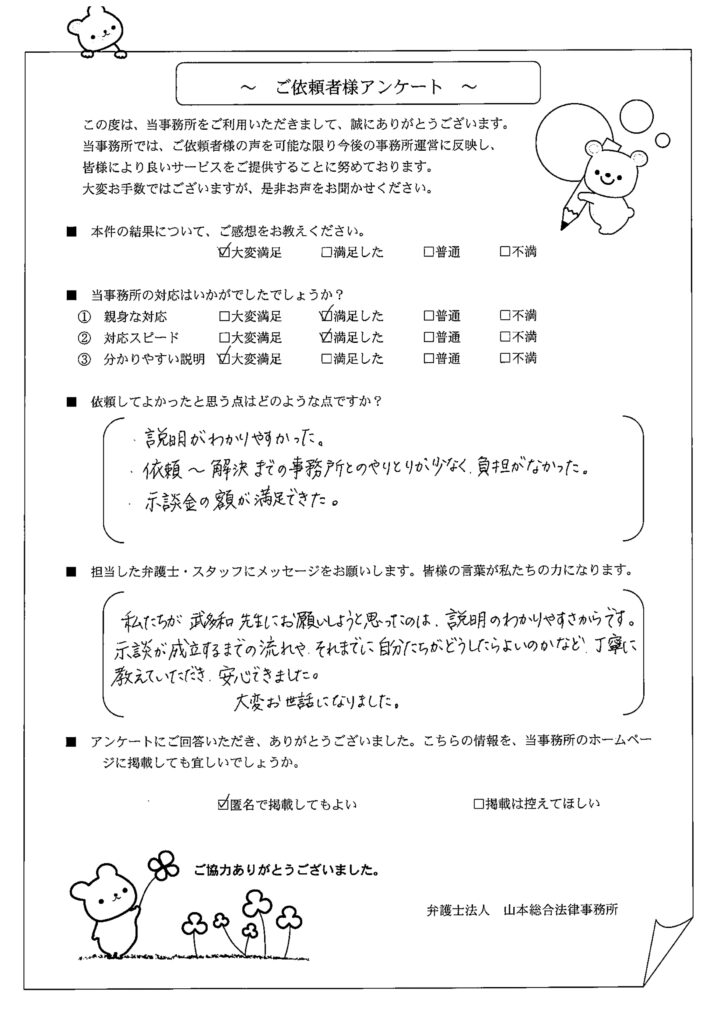 ～　ご依頼者様アンケート　～
この度は、当事務所をご利用いただきまして、誠にありがとうございます。
当事務所では、ご依頼者様の声を可能な限り今後の事務所運営に反映し、
皆様により良いサービスをご提供することに努めております。
大変お手数ではございますが、是非お声をお聞かせください。
■　本件の結果について、ご感想をお教えください。
☑大変満足　□満足した　□普通　□不満
■　当事務所の対応はいかがでしたでしょうか？
①　親身な対応　□大変満足　☑満足した　□普通　□不満
②　対応スピード　□大変満足　☑満足した　□普通　□不満
③　分かりやすい説明　☑大変満足　□満足した　□普通　□不満
■　依頼してよかったと思う点はどのような点ですか？
・説明がわかりやすかった。
・依頼～解決までの事務所とのやりとりが少なく、負担がなかった。
・示談金の額が満足できた。
■　担当した弁護士・スタッフにメッセージをお願いします。皆様の言葉が私たちの力になります。
私たちが武多和先生にお願いしようと思ったのは、説明のわかりやすさからです。
示談が成立するまでの流れや、それまでに自分たちがどうしたらよいのかなど、丁寧に
教えていただき、安心できました。
大変お世話になりました。
■　アンケートにご回答いただき、ありがとうございました。こちらの情報を、当事務所のホームペー
ジに掲載しても宜しいでしょうか。
☑匿名で掲載してもよい　□掲載は控えてほしい
ご協力ありがとうございました。
弁護士法人　山本総合法律事務所